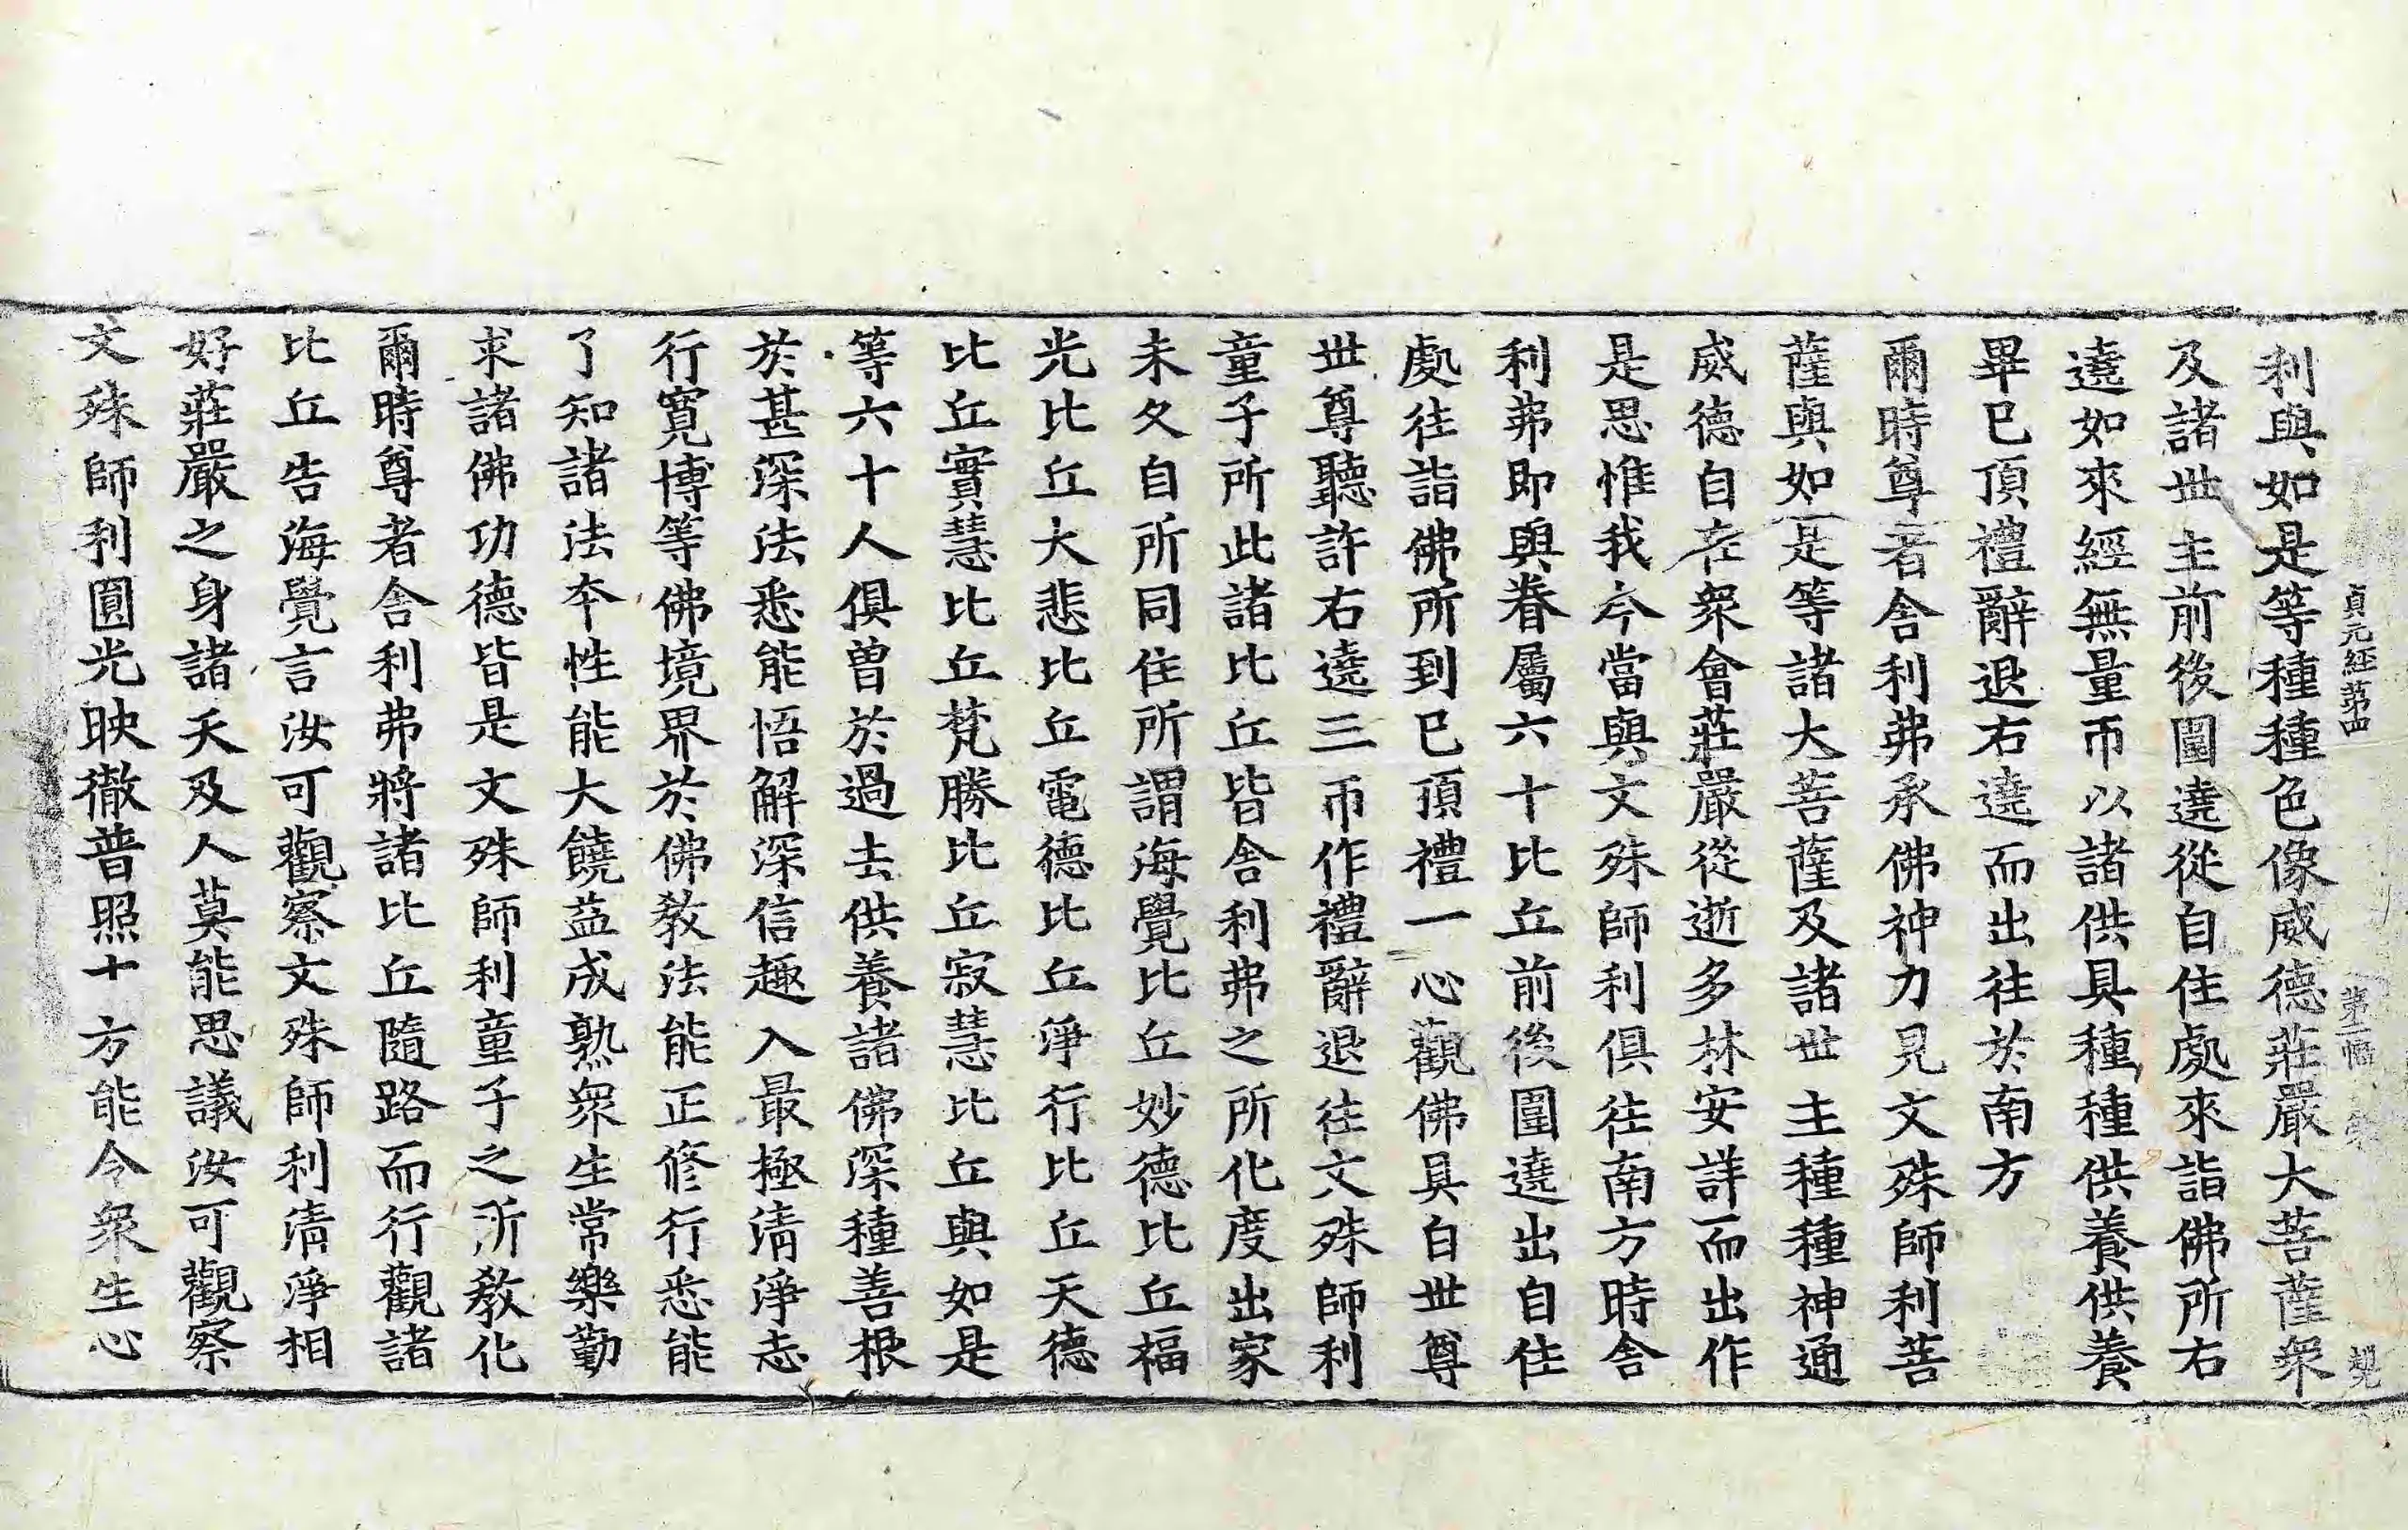 貞元經第四 第二幅
利與如是等種種色像威德莊嚴大菩薩衆
及諸世主前後圍遶從自住處來詣佛所右
遶如來經無量帀以諸供具種種供養供養
畢已頂禮辭退右遶而出往於南方
爾時尊者舍利弗承佛神力見文殊師利菩
薩與如是等諸大菩薩及諸世主種種神通
威德自在衆會莊嚴從逝多林安詳而出作
是思惟我今當與文殊師利俱往南方時舍
利弗即與眷屬六十比丘前後圍遶出自住
處往詣佛所到已頂禮一心觀佛具白世尊
世尊聽許右遶三帀作禮辭退往文殊師利
童子所此諸比丘皆舍利弗之所化度出家
未久自所同住所謂海覺比丘妙德比丘福
光比丘大悲比丘電德比丘淨行比丘天德
比丘實慧比丘梵勝比丘寂慧比丘與如是
等六十人俱曾於過去供養諸佛深種善根
於甚深法悉能悟解深信趣入最極清淨志
行寬博等佛境界於佛敎法能正修行悉能
了知諸法本性能大饒益成熟衆生常樂勤
求諸佛功德皆是文殊師利童子之所敎化
爾時尊者舍利弗將諸比丘隨路而行觀諸
比丘告海覺言汝可觀察文殊師利淸淨相
好莊嚴之身諸天及人莫能思議汝可觀察
文殊師利圓光映徹普照十方能令衆生心